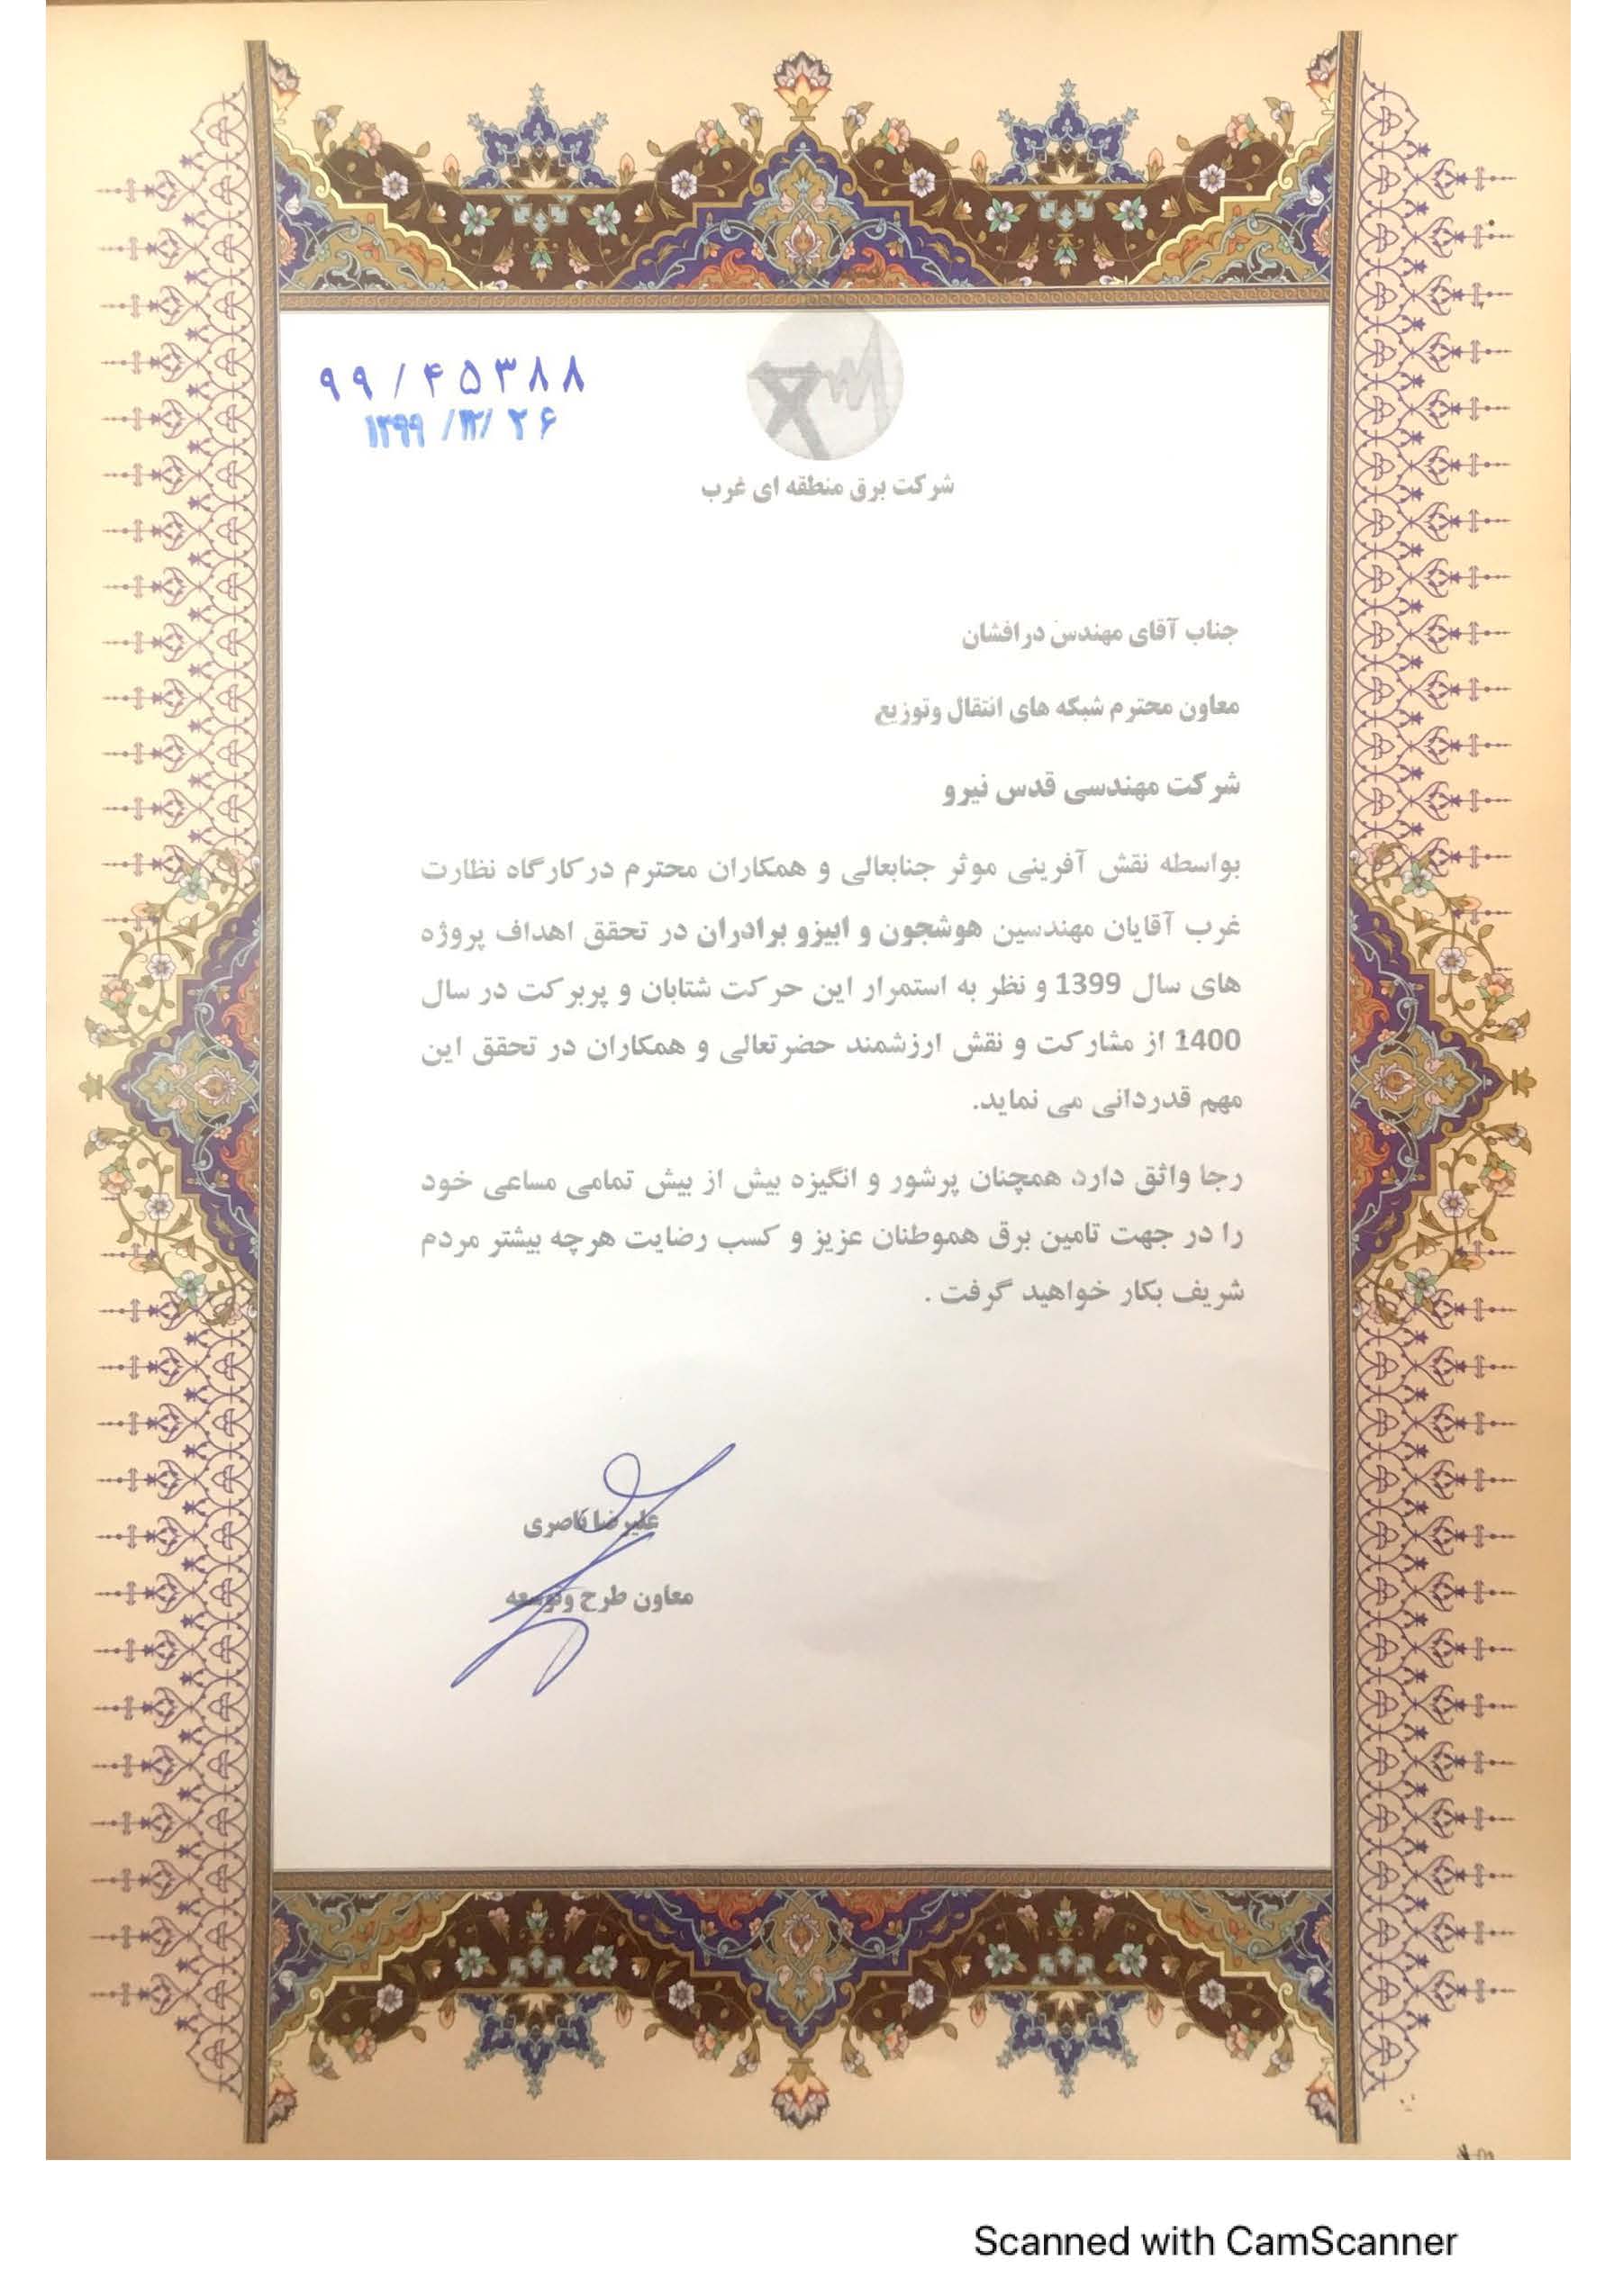 ۹۹/۴۵۳۸۸
۱۳۹۹/۱۲/۲۶
شرکت برق منطقه ای غرب
جناب آقای مهندس درافشان
معاون محترم شبکه های انتقال وتوزیع
شرکت مهندسی قدس نیرو
بواسطه نقش آفرینی موثر جنابعالی و همکاران محترم درکارگاه نظارت
غرب آقایان مهندسین هوشجون و ابیزو برادران در تحقق اهداف پروژه
های سال 1399 و نظر به استمرار این حرکت شتابان و پربرکت در سال
1400 از مشارکت و نقش ارزشمند حضرتعالی و همکاران در تحقق این
مهم قدردانی می نماید.
رجا واثق دارد همچنان پرشور و انگیزه بیش از بیش تمامی مساعی خود
را در جهت تامین برق هموطنان عزیز و کسب رضایت هرچه بیشتر مردم
شریف بکار خواهید گرفت .
علیرضا ناصری
معاون طرح وتوسعه
Scanned with CamScanner